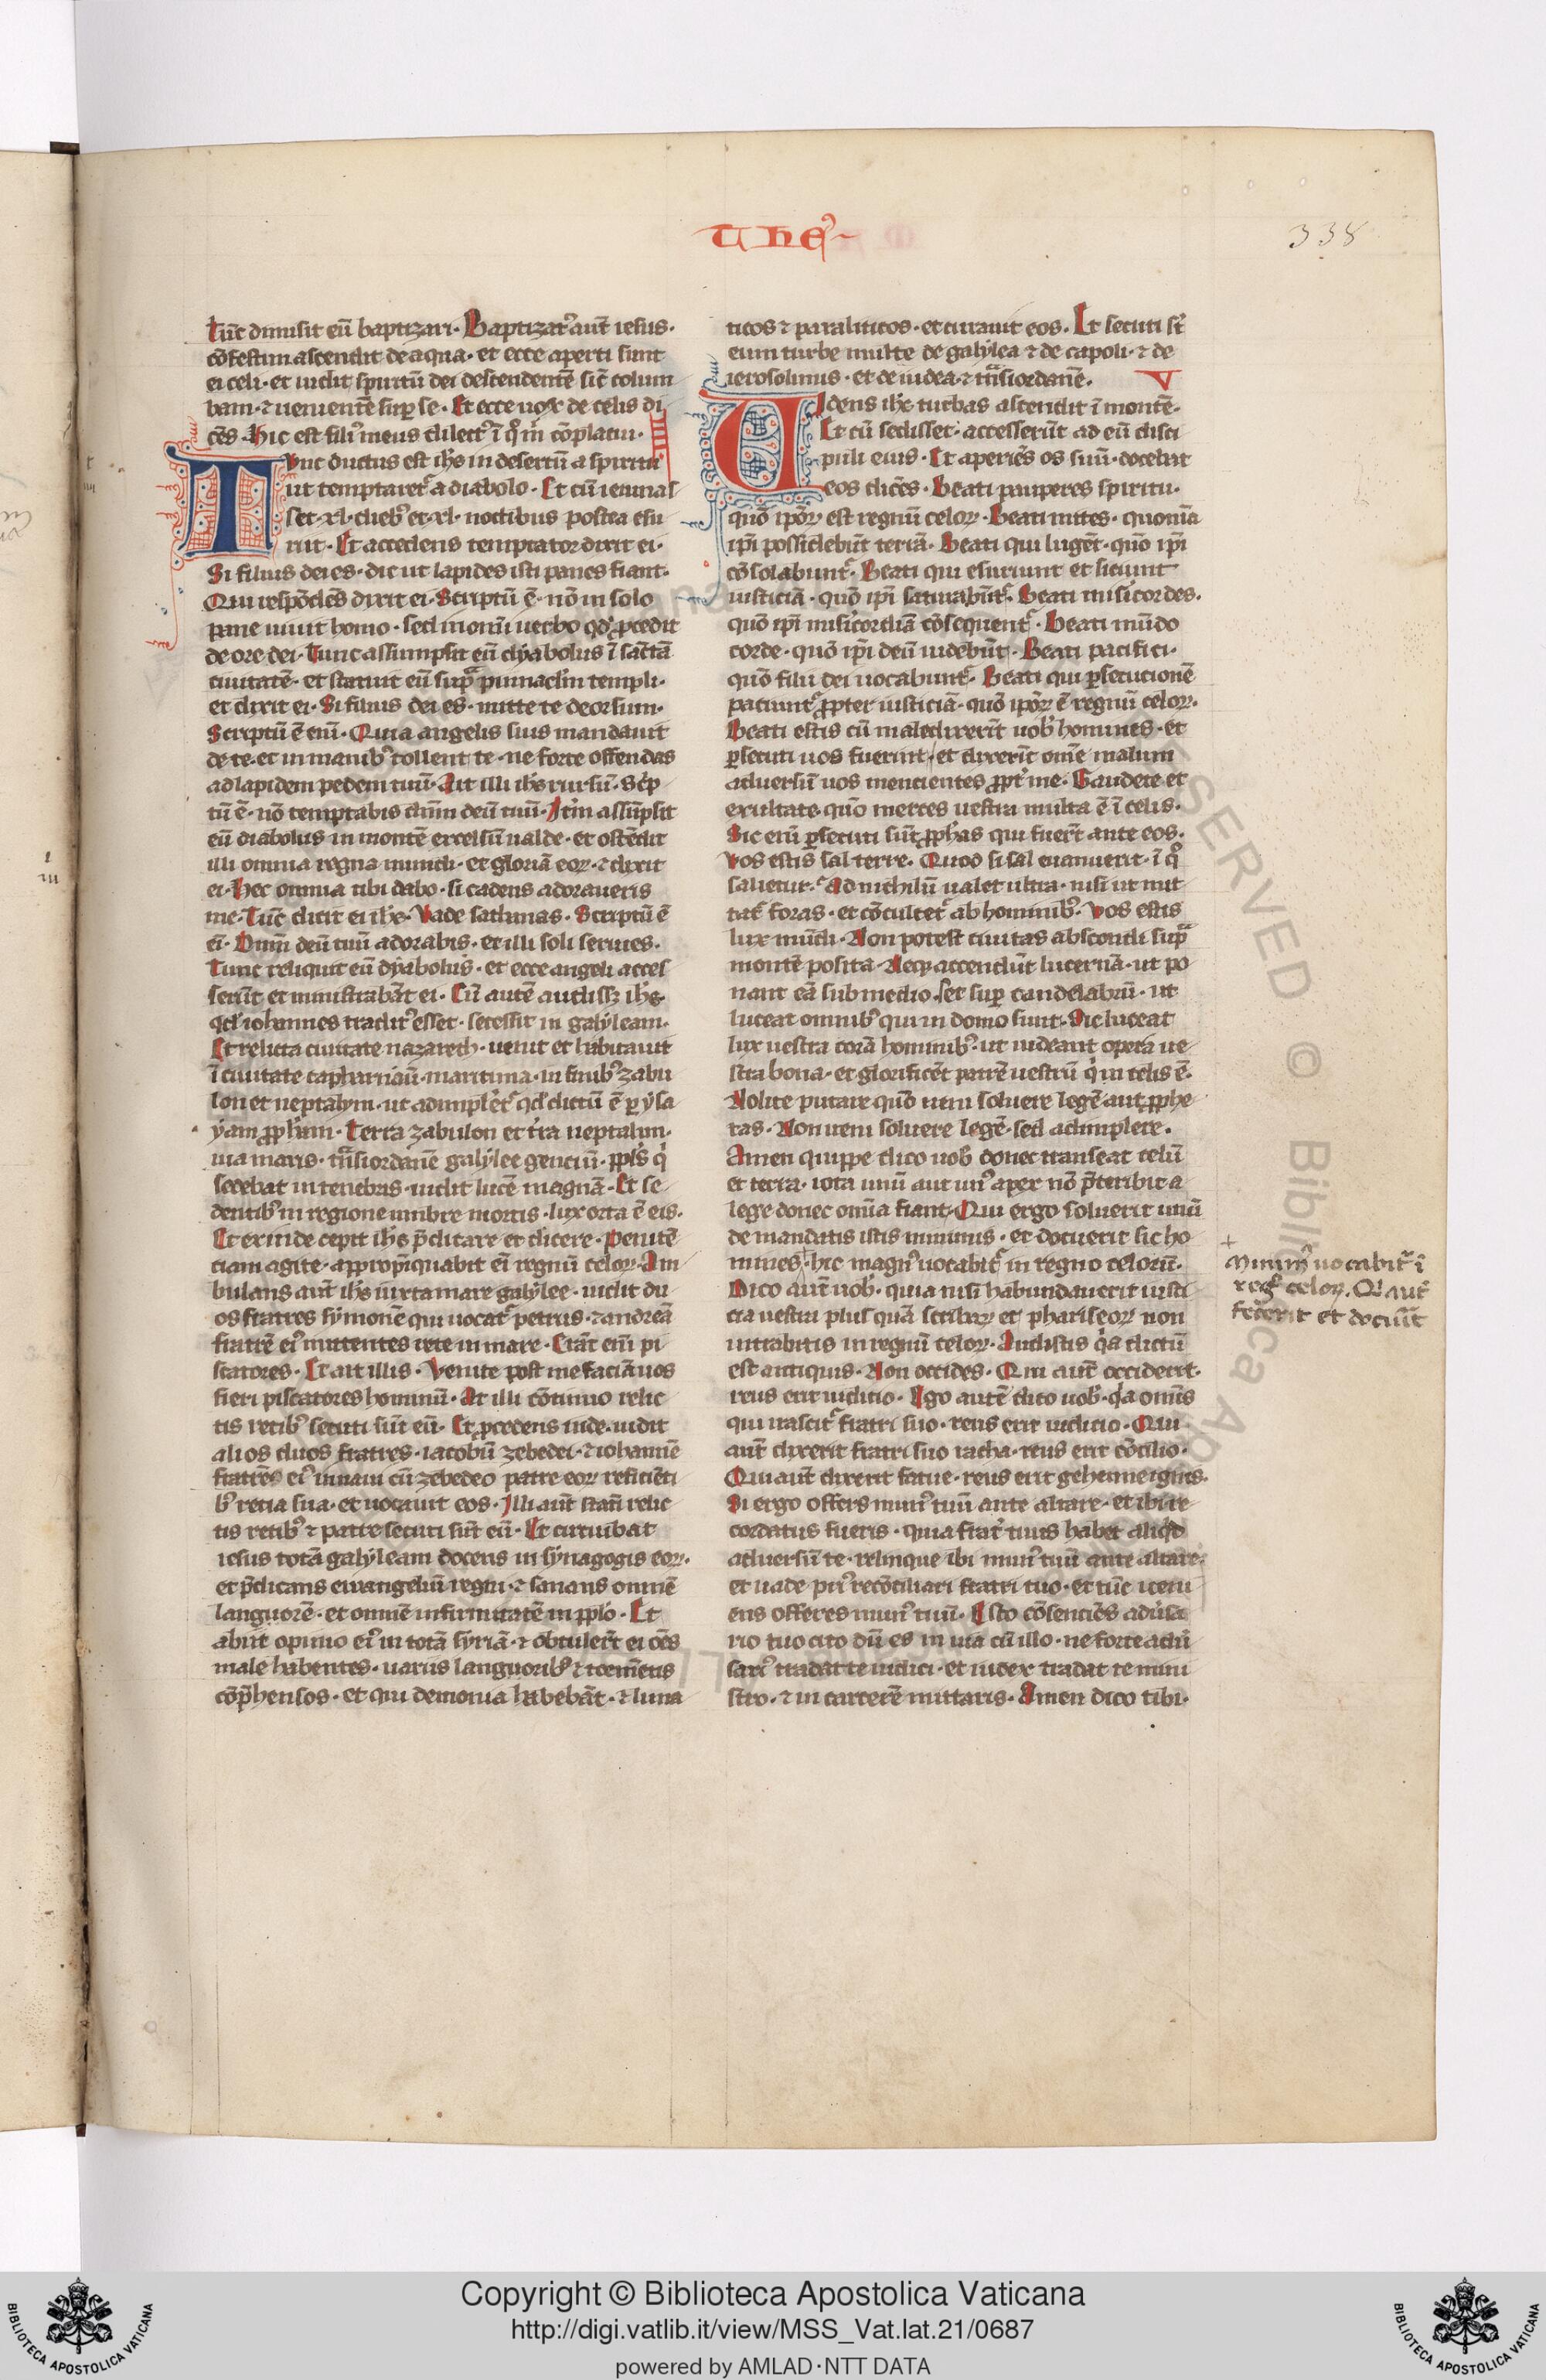 THEꝰ
338
Tūc dimisit eū baptizari· Baptizatꝰ aūt iesus·
cōfestim ascendit de aqua· et ecce aperti sunt
ei celi· et uidit spiritū dei descendentē sic̄ colum
bam· ⁊ uenientē suꝑ se· Et ecce uox de celis di
cēs· Hic est filiꝰ meus dilectꝰ ī qͦ m̄ cōplacui·
IIII
Tunc ductus est ih̄s in desertū a spiritu
ut temptaret᷑ a diabolo· Et cū ieiunas
set·xl·diebꝰ et·xl·noctibus postea esu
riit· Et accedens temptator dixit ei·
Si filius dei es· dic ut lapides isti panes fiant·
Qui respōdēs dixit ei· Scriptū ē· nō in solo
pane uiuit homo· sed in om̄i uerbo qd̓ ꝓcedit
de ore dei· Tunc assumpsit eū dyabolus ī sāctā
ciuitatē· et statuit eū supᷓ pinnaclm̄ templi·
et dixit ei· Si filius dei es· mitte te deorsum·
Scriptū ē eni̅· Quia angelis suis mandauit
de te· et in manibꝰ tollent te· ne forte offendas
ad lapidem pedem tuū· Ait illi ih̄s rursū· Sc̓p
tū ē· nō temptabis dn̄m deū tuū· Itm̄ assūpsit
eū diabolus in montē excelsū ualde· et ostēdit
illi omnia regna mundi· et gloriā eoꝝ· ⁊ dixit
ei· Hec omnia tibi dabo· si cadens adoraueris
me· Tūc dicit ei ih̄c· Vade sathanas· Scriptū ē
ei̅· Dn̄m deū tuū adorabis· et illi soli seruies·
Tunc reliquit eū dyabolus· et ecce angeli acces
serūt et ministrabāt ei· Cū autē audissꝫ ih̄s
qd̓ iohannes traditꝰ esset· secessit in galyleam·
Et relicta ciuitate nazareth· uenit et habitauit
ī ciuitate capharnaū· maritima· in finibꝰ zabu
lon et neptalym· ut adimplēt᷑ qd̓ dictū ē ꝑ ysa
yam ꝓph̄am· Terra zabulon et tr̄a neptalim·
uia maris· tᷓnsiordanē galylee gentiū· ppl̄s qͥ
sedebat in tenebras· uidit lucē magnā· Et se
dentibꝰ in regione umbre mortis· lux orta ē eis·
Et exinde cepit ih̄s p̄dicare et dicere· Penitē
ciam agite· appropīquabit ei̅ regnū celoꝝ· Am
bulans aūt ih̄s iuxta mare galylee· uidit du
os fratres symonē qui uocat᷑ petrus· ⁊ andreā
fratrē eiꝰ mittentes rete in mare· Erāt eni̅ pi
scatores· Et ait illis· Venite post me faciā uos
fieri piscatores hominū· At illi cōtinuo relic
tis retibꝰ secuti sūt eū· Et ꝓcedens inde· uidit
alios duos fratres· iacobū zebedei· ⁊ iohannē
fratrē eiꝰ in naui cū zebedeo patre eoꝝ reficiēti
bꝰ retia sua· et uocauit eos· Illi aūt stati̅ relic
tis retibꝰ ⁊ patre secuti sūt eū· Et circuibat
iesus totā galyleam docens in synagogis eoꝝ·
et p̄dicans euuangeliū regni· ⁊ sanans omnē
languorē· et omnē infirmitatē in ppl̄o· Et
abiit opinio eiꝰ in totā syriā· ⁊ obtulerūt ei oēs
male habentes· uariis languoribꝰ ⁊ tormētis
cōp̄hensos· et qui demonia habebāt· ⁊ luna
ticos ⁊ paraliticos· et curauit eos. Et secuti st̄
eum turbe multe de galylea ⁊ de capoli· ⁊ de
ierosolimis· et de iudea· ⁊ tᷓnsiordanē.
V
Uidens ih̄c turbas ascendit ī montē·
Et cū sedisset· accesserūt ad eū disci
puli eius· Et aperiēs os suū· docebat
eos dicēs· Beati pauperes spiritu·
quō ipōꝝ est regnū celoꝝ· Beati mites· quoniā
ipi̅ possidebūt terrā· Beati qui lugēt· quō ipi̅
cōsolabunt᷑· Beati qui esuriunt et siciunt
iusticiā· quō ipi̅ saturabūt᷑· Beati misicordes.
quō ipi̅ misicordiā cōsequent᷑· Beati mūdo
corde· quō ipi̅ deū uidebūt· Beati pacifici·
quō filii dei uocabunt᷑· Beati qui ꝑsecutionē
paciunt᷑ ꝓpter iusticiā· quō ipōꝝ ē regnū celoꝝ·
Beati estis cū maledixerīt uob̄ homines· et
ꝑsecuti uos fuerint· et dixerīt om̄e malum
aduersū uos mencientes ꝓpt̓ me· Gaudete et
exultate quō merces uestra multa ē ī celis·
Sic eni̅ ꝑsecuti sūt ꝓph̄as qui fuerūt ante eos·
Vos estis sal terre· Quod si sal euanuerit· ī qͦ
salietur· Ad nichilū ualet ultra· nisi ut mit
tat᷑ foras· et cōcultet᷑ ab hominibꝰ· Vos estis
lux mūdi· Non potest ciuitas abscondi supᷓ
montē posita· Neqꝫ accendūt lucernā· ut po
nant eā sub medio· set suꝑ candelabrū· ut
luceat omnibꝰ qui in domo sunt· Sic luceat
lux uestra corā hominibꝰ· ut uideant opera ue
stra bona· et glorificēt patrē uestrū qͥ in celis ē·
Nolite putare quō ueni soluere legē aut ꝓphe
tas· Non ueni soluere legē· sed adimplere·
Amen quippe dico uob̄ donec transeat celū
et terra· iota unū aut unꝰ apex nō p̄teribit a
lege donec omīa fiant· Qui ergo soluerit unū
de mandatis istis minimis· et docuerit sic ho
mines· hic magnꝰ uocabit᷑ in regno celorū·
Dico aūt uob̄· quia nisi habundauerit iusti
cia uestra plus quā scribaꝝ et phariseoꝝ non
intrabitis in regnū celoꝝ· Audistis qͥa dictū
est antiquis· Non occides· Qui aūt occiderit·
reus erit iudicio· Ego autē dico uob̄· qͥa omīs
qui irascit᷑ fratri suo· reus erit iudicio· Qui
aūt dixerit fratri suo racha· reus erit cōcilio·
Qui aūt dixerit fatue· reus erit gehenne ignis·
Si ergo offers munꝰ tuū ante altare· et ibi re
cordatus fueris· quia frat̓ tuus habet aliqd̓
aduersū te· relinque ibi munꝰ tuū ante altare·
et uade priꝰ recōciliari fratri tuo· et tūc ueni
ens offeres munꝰ tuū· Esto cōsenciēs adu̓sa
rio tuo cito dū es in uia cū illo· ne forte adu̓
sariꝰ tradat te iudici· et iudex tradat te mini
stro· ⁊ in carcerē mittaris· Amen dico tibi·
+
Minimꝰ uocabit᷑ ī
regͦ celoꝝ. Qͥ aut̄
fecerit et docuīt
Copyright © Biblioteca Apostolica Vaticana
http://digi.vatlib.it/view/MSS_Vat.lat.21/0687
powered by AMLAD·NTT DATA
BIBLIOTECA APOSTOLICA VATICANA
BIBLIOTECA APOSTOLICA VATICANA